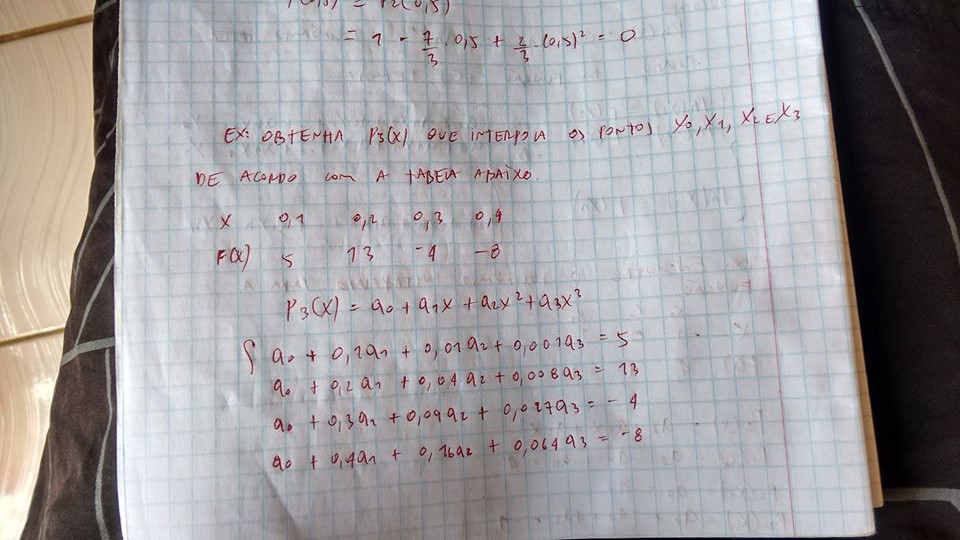 = P2(0,5)
= 1 - 7/3 . 0,5 + 2/3 . (0,5)² = 0
EX: OBTENHA P3(X) QUE INTERPOLA OS PONTOS X0, X1, X2 E X3
DE ACORDO COM A TABELA ABAIXO.
X 0,1 0,2 0,3 0,4
F(X) 5 13 -4 -8
P3(X) = a0 + a1x + a2x² + a3x³
{ a0 + 0,1a1 + 0,01a2 + 0,001a3 = 5
a0 + 0,2a1 + 0,04a2 + 0,008a3 = 13
a0 + 0,3a1 + 0,09a2 + 0,027a3 = -4
a0 + 0,4a1 + 0,16a2 + 0,064a3 = -8